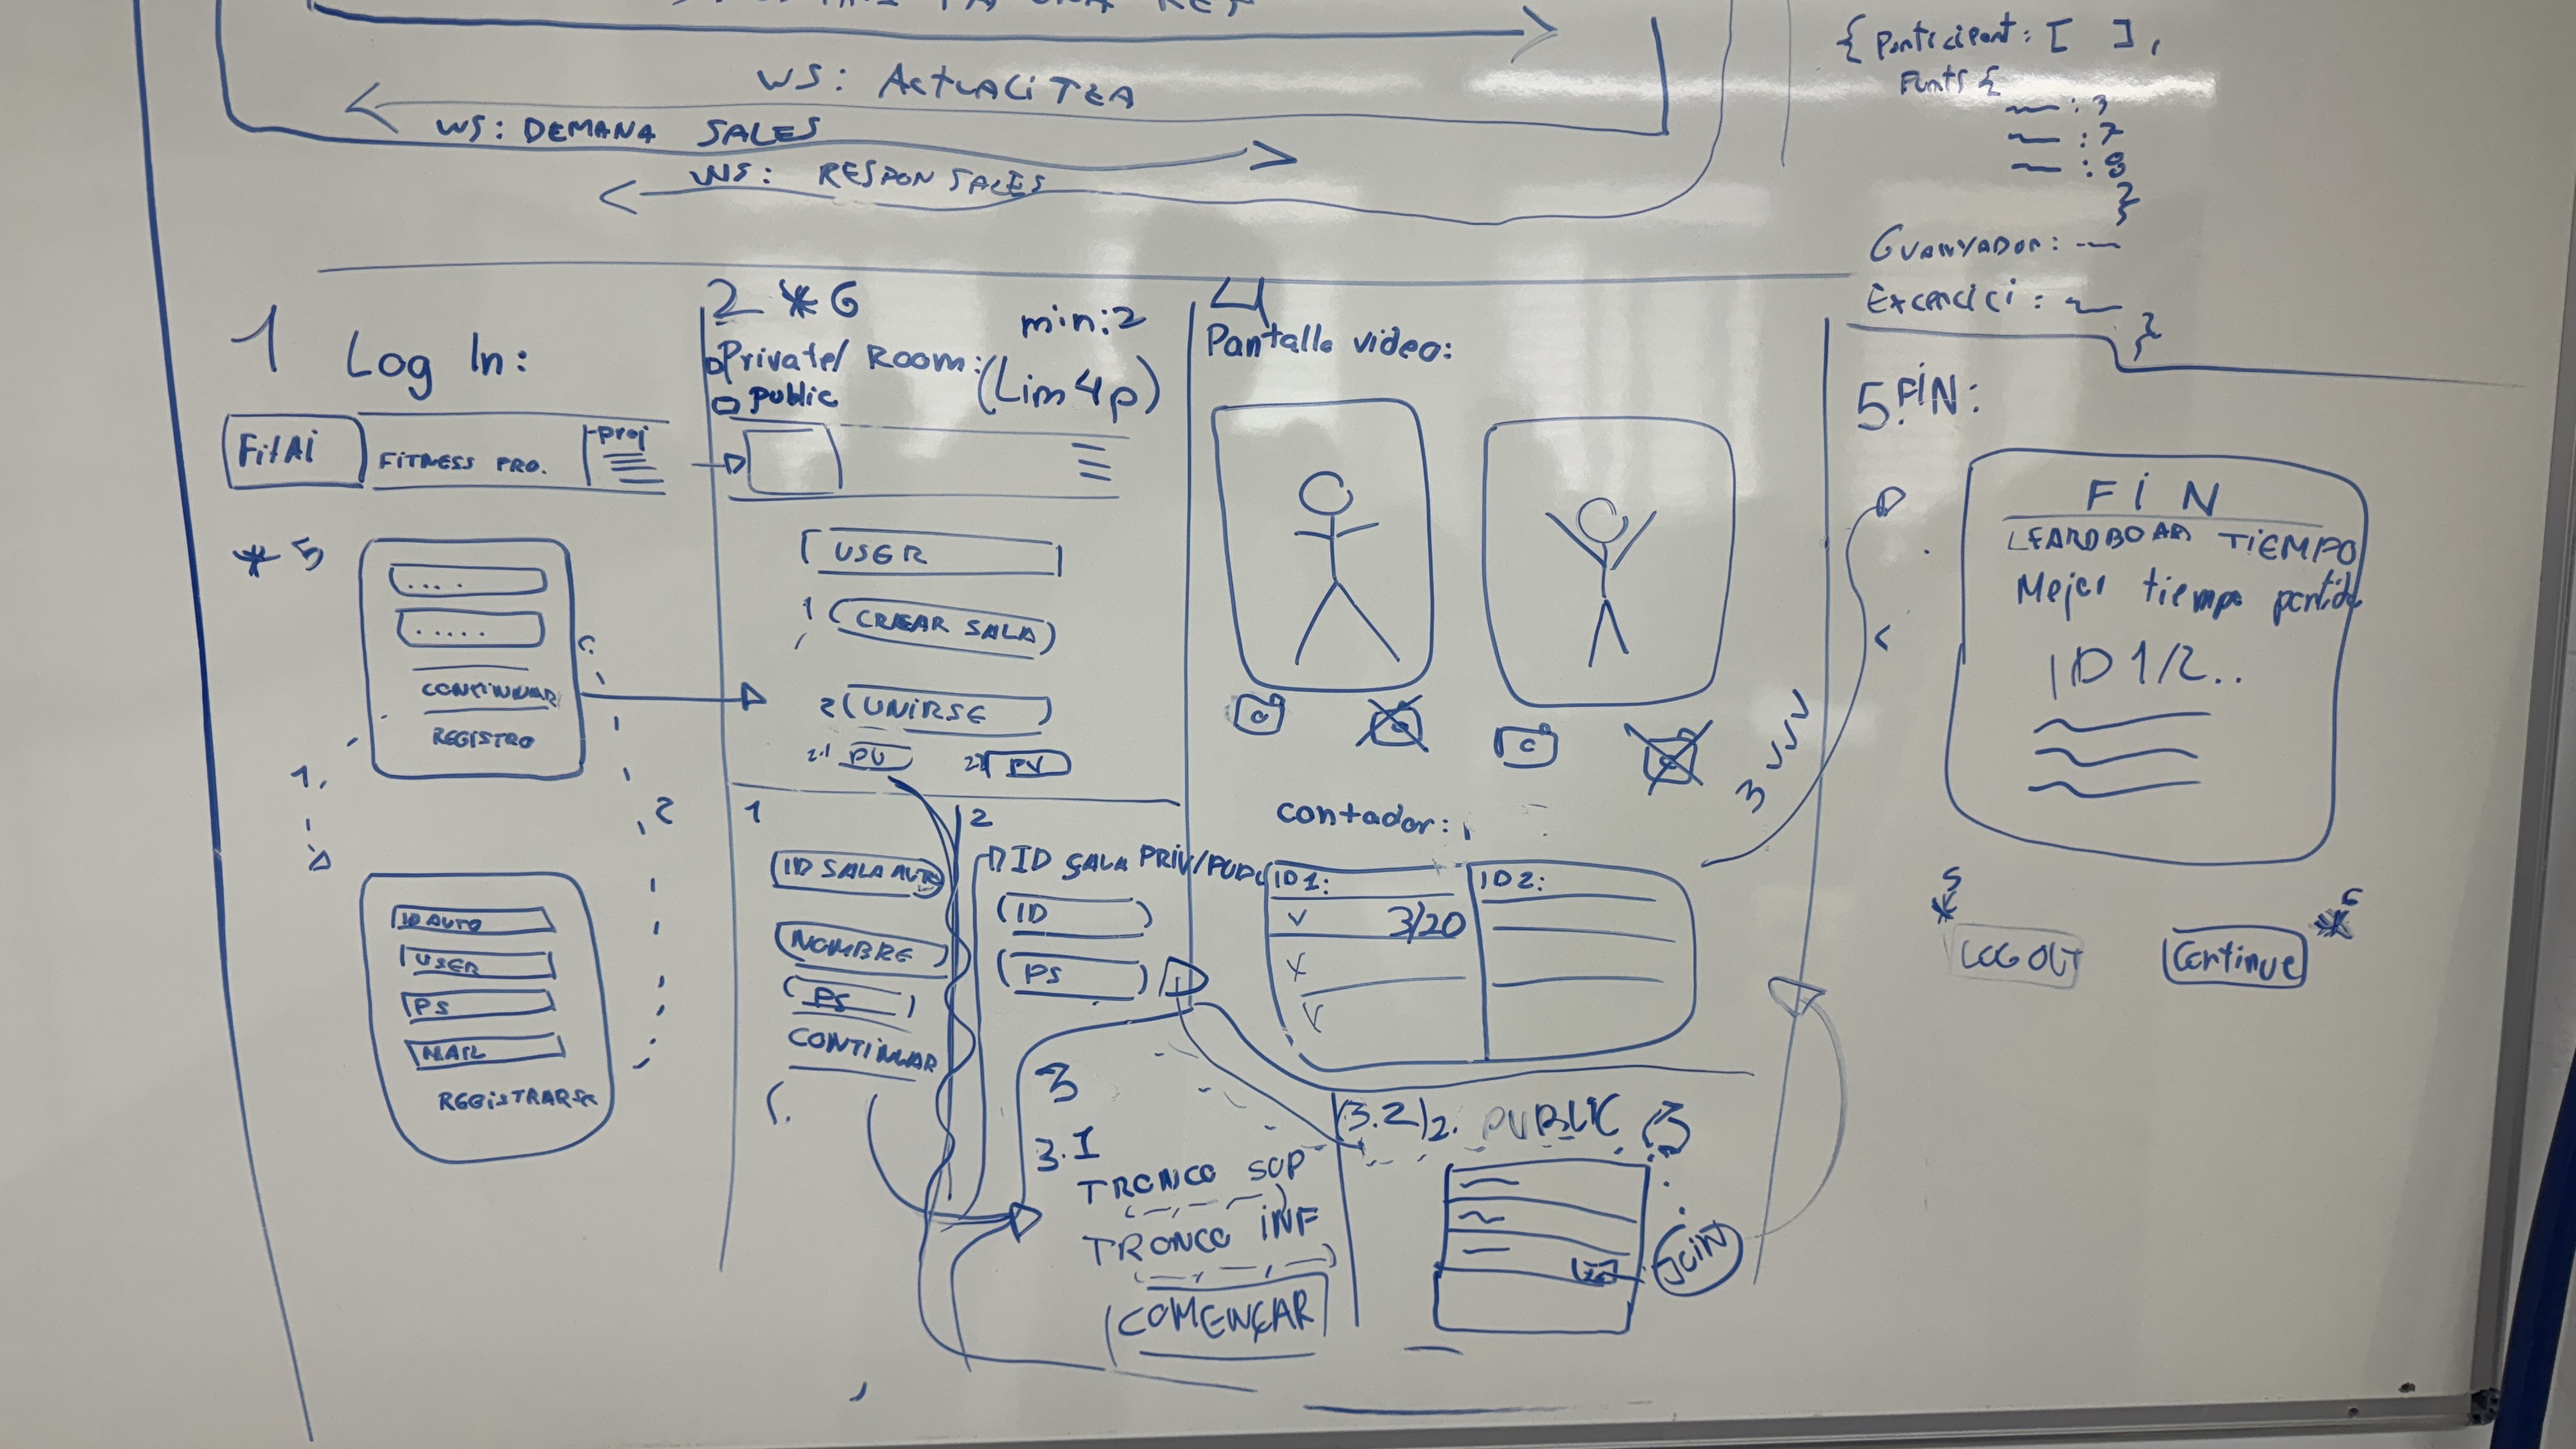 WS: ACTUALITZA
WS: DEMANA SALES
WS: RESPON SALES
{ Participant: [ ],
Punts {
: 3
: 7
: 8
}
Guanyador: —
Excercici: ~
}
1 Log In:
FitAi
FITNESS PRO.
Proj
* 5
... .
.....
CONTINUAR
REGISTRO
1.
2
ID AUTO
USER
PS
MAIL
REGISTRARSE
2 * 6
min:2
Private/ Room: (Lim 4p)
public
USER
1 CREAR SALA
2 UNIRSE
2.1 PU
PV
1
ID SALA AUTO
NOMBRE
PS
CONTINUAR
2
ID SALA PRIV/PUBL
ID
PS
3
3.1
TRONCO SUP
TRONCO INF
COMENÇAR
(3.2) 2. PUBLIC
JOIN
4
Pantalla video:
contador:
ID1:
ID2:
V 3/20
X
V
3 VVV
5. FIN:
FIN
LEARDBOAR TIEMPO
Mejor tiempo partida
ID 1/2..
* 5
LOG OUT
* 6
Continue